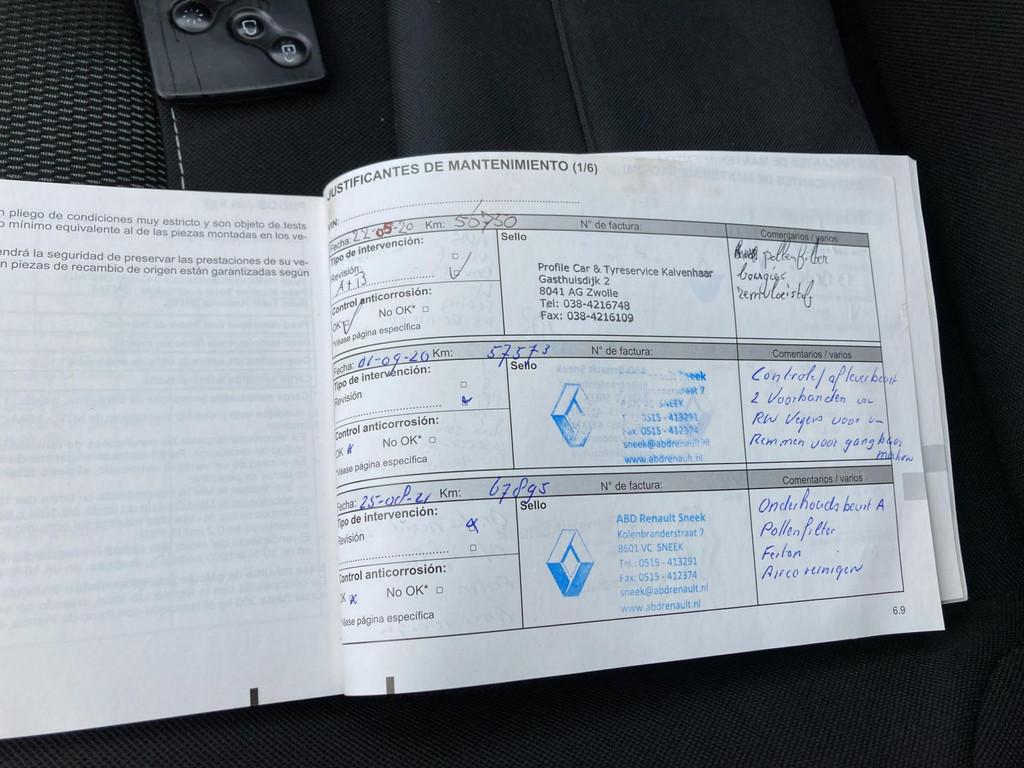 n pliego de condiciones muy estricto y son objeto de tests
o mínimo equivalente al de las piezas montadas en los ve-
endrá la seguridad de preservar las prestaciones de su ve-
n piezas de recambio de origen están garantizadas según
JUSTIFICANTES DE MANTENIMIENTO (1/6)
VIN:
Fecha: 22-05-20 Km: 56750 N° de factura: Comentarios / varios
Tipo de intervención:
Revisión
A+B
Control anticorrosión:
OK No OK*
*Véase página específica
Sello
Profile Car & Tyreservice Kalvenhaar
Gasthuisdijk 2
8041 AG Zwolle
Tel: 038-4216748
Fax: 038-4216109
pollenfilter
bougies
remvloeistof
Fecha: 01-09-20 Km: 57573 N° de factura: Comentarios / varios
Tipo de intervención:
Revisión
Control anticorrosión:
OK x No OK*
*Véase página específica
Sello
Sneek
7
SNEEK
0515 - 413291
Fax: 0515 - 412374
sneek@abdrenault.nl
www.abdrenault.nl
Controle/afleverbeurt
2 Voorbanden vv
RW Vegers voor vv
Remmen voor gangbaar
maken
Fecha: 25-08-21 Km: 67895 N° de factura: Comentarios / varios
Tipo de intervención:
Revisión
Control anticorrosión:
OK x No OK*
*Véase página específica
Sello
ABD Renault Sneek
Kolenbranderstraat 7
8601 VC SNEEK
Tel.: 0515 - 413291
Fax: 0515 - 412374
sneek@abdrenault.nl
www.abdrenault.nl
Onderhoudsbeurt A
Pollenfilter
Airco reinigen
6.9